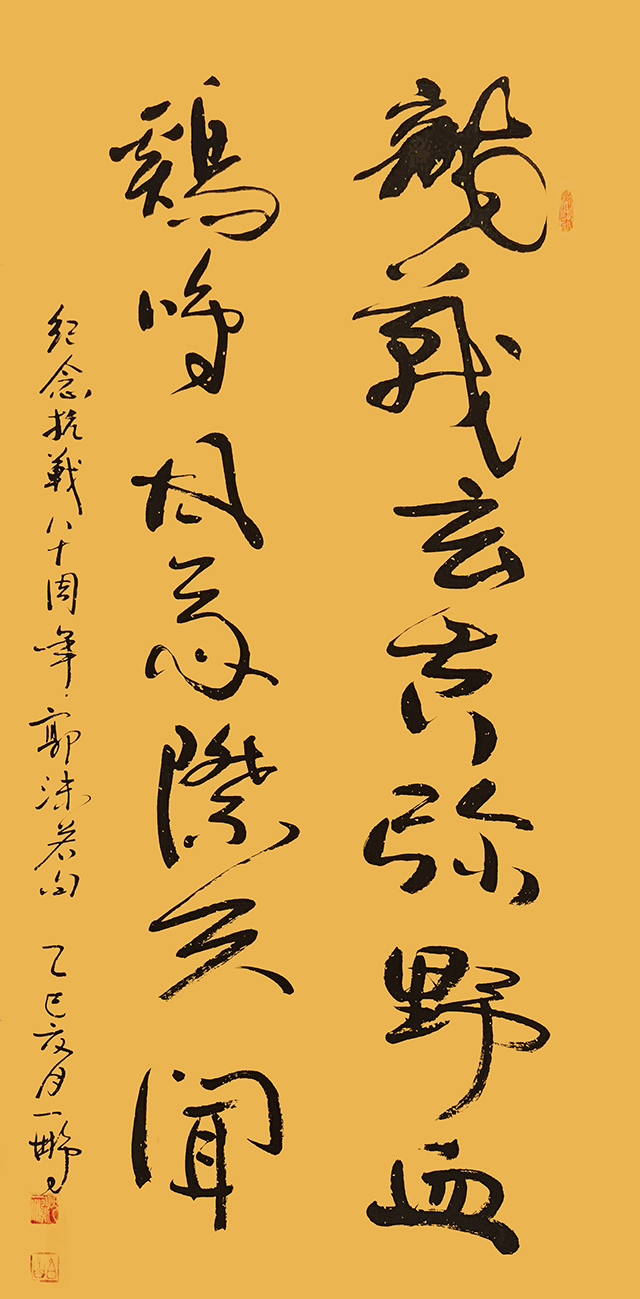 龍戰玄黄弥野血
鷄鳴風雨際天聞
紀念抗戰八十周年·郭沫若句 乙巳夏月一